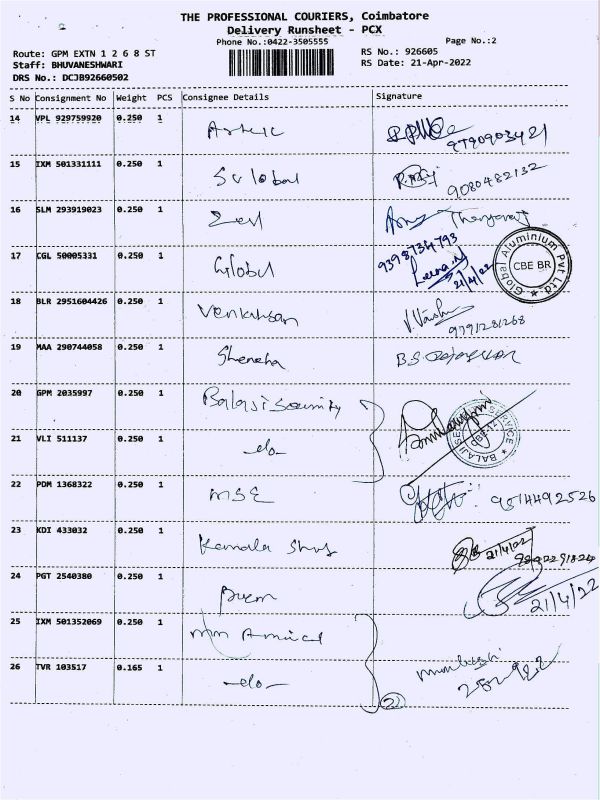 THE PROFESSIONAL COURIERS, Coimbatore
Delivery Runsheet - PCX
Phone No.:0422-3505555
Page No.:2
Route: GPM EXTN 1 2 6 8 ST
RS No.: 926605
Staff: BHUVANESHWARI
RS Date: 21-Apr-2022
DRS No.: DCJB92660502
S No Consignment No Weight PCS Consignee Details Signature
14 VPL 929759920 0.250 1
9790903421
15 IXM 501331111 0.250 1
9080482132
16 SLM 293919023 0.250 1 Zest
17 CGL 50005331 0.250 1 Global
9398734793
21/4/22
Global Aluminium Pvt Ltd.
CBE BR
18 BLR 2951604426 0.250 1
9791281268
19 MAA 290744058 0.250 1 Sheneha
20 GPM 2035997 0.250 1 Balaji Security
21 VLI 511137 0.250 1 -do-
22 PDM 1368322 0.250 1 MSE
9514492526
23 KDI 433032 0.250 1 Kamala
21/4/22
24 PGT 2540380 0.250 1
21/4/22
25 IXM 501352069 0.250 1
26 TVR 103517 0.165 1 -do-
2